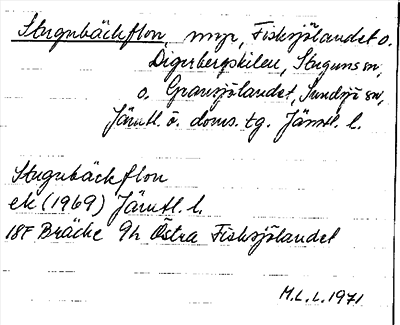 Stugubäckflon, myr, Fisksjölandet o.
Digerbergskilen, Stuguns sn,
o. Gransjölandet, Sundsjö sn,
Jämtl. ö. doms. tg. Jämtl. l.
Stugubäckflon
ek (1969) Jämtl. l.
18F Bräcke 9h Östra Fisksjölandet
M.L.L. 1971